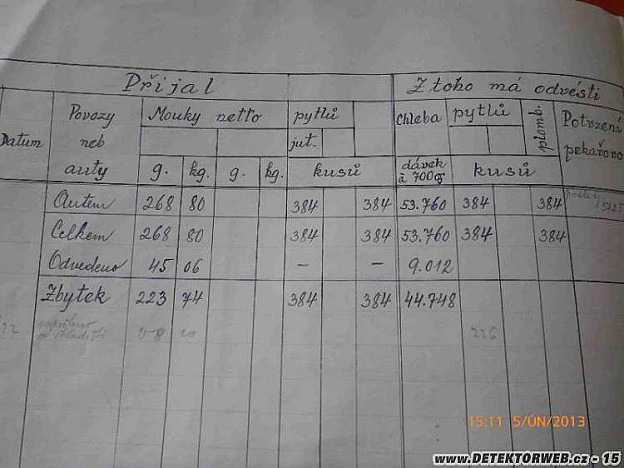 Přijal Z toho má odvésti
Datum Povozy neb auty Mouky netto pytlů Chleba pytlů plomb. Potvrzení pekařovo
jut.
g. kg. g. kg. kusů dávek à 700g kusů
Autem 268 80 384 384 53.760 384 384
Celkem 268 80 384 384 53.760 384 384
Odvedeno 45 06 – – 9.012
Zbytek 223 74 384 384 44.748
15:11 5/ÚN/2013
www.DETEKTORWEB.cz - 15